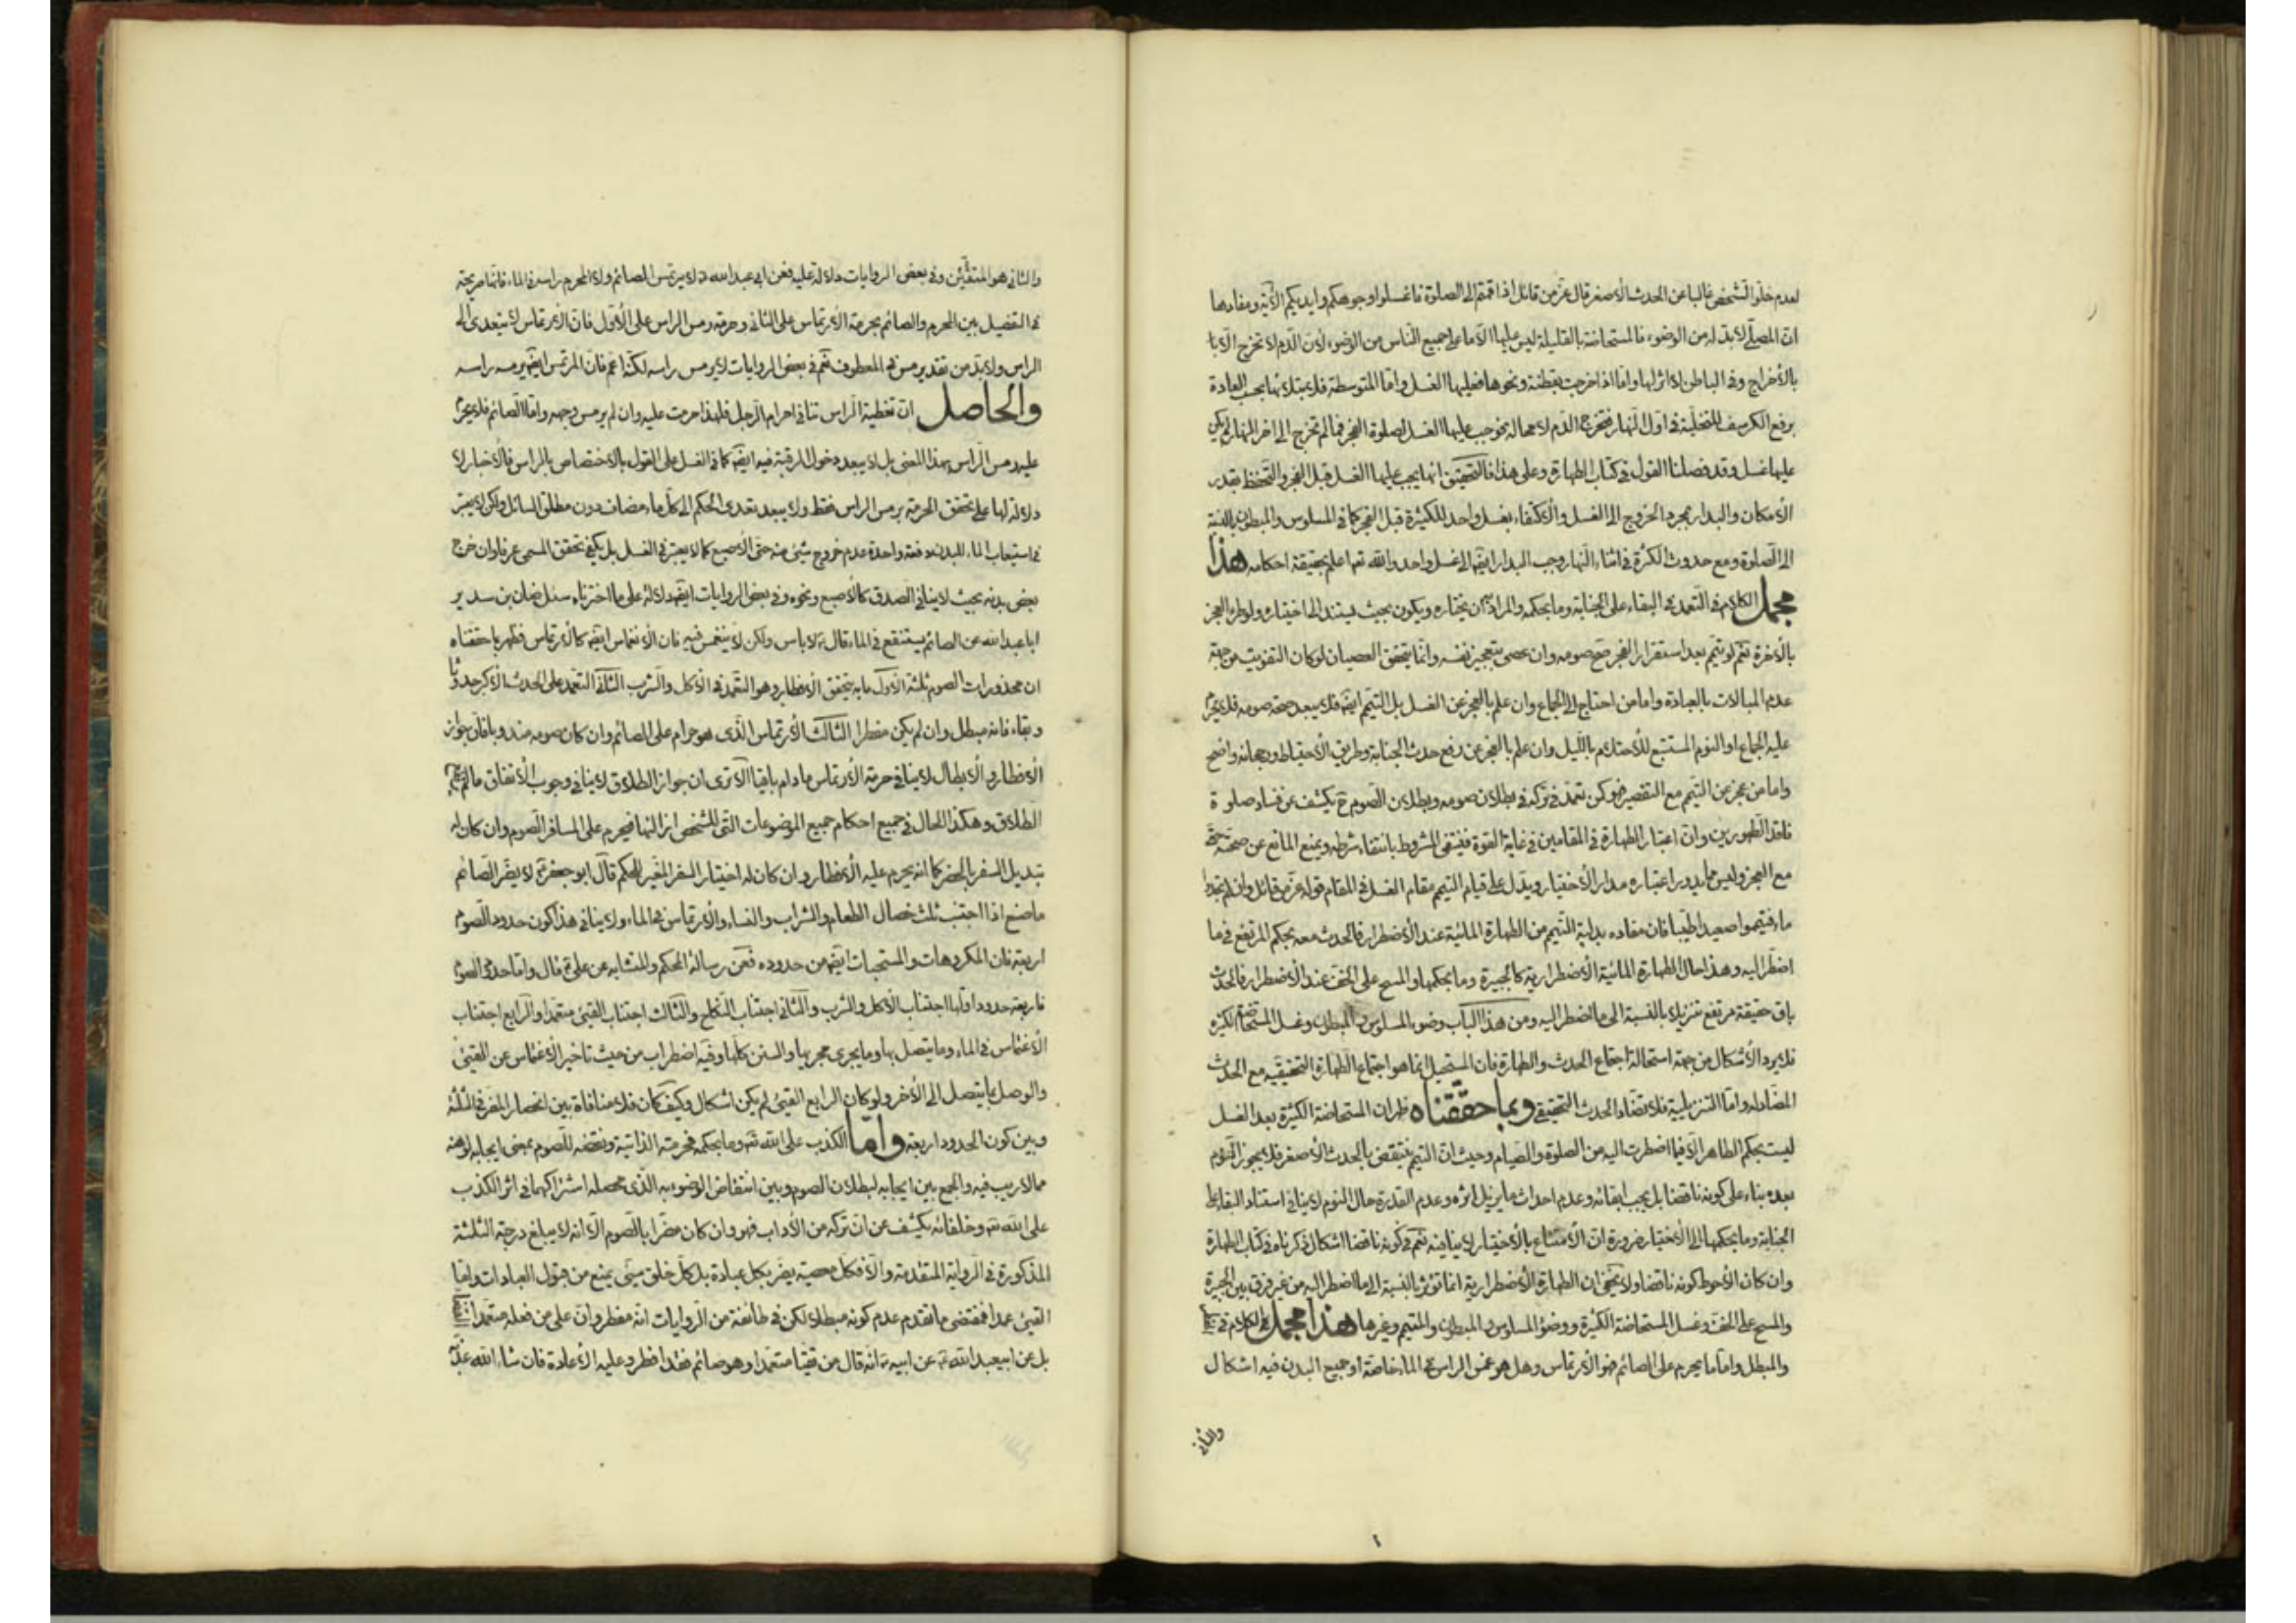 لعدم خلو الشخص غالبا عن الحدث الأصغر قال عز من قائل اذا قمتم الى الصلوة فاغسلوا وجوهكم وايديكم الآية ومفادها
ان المصلى لابد له من الوضوء فالمستحاضة بالقليلة ليس عليها الا ما على جميع الناس من الوضوء لأن الدم لا تخرج الا با
بالأخراج وفى الباطن لا اثر لها واما اذا خرجت بقطنة ونحوها فعليها الغسل واما المتوسطة فلابتلائها بحسب العادة
برفع الكرسف للتخلية فى اول النهار فتخرج الدم لا محالة يوجب عليها الغسل لصلوة الفجر فما لم تخرج الى اخر النهار لم يكن
عليها غسل وقد فصلنا القول فى كتاب الطهارة وعلى هذا فالتحقيق انها يجب عليها الغسل قبل الفجر والتحفظ بقدر
الأمكان والبدار بمجرد الخروج الى الغسل والأكتفاء بغسل واحد للكثيرة قبل الفجر كما فى المسلوس والمبطون بالنسبة
الى الصلوة ومع حدوث الكثرة فى اثناء النهار وجب البدار ايضا الى غسل واحد والله تعالى اعلم بحقيقة احكامه هذا
مجمل الكلام فى التعمد فى البقاء على الجنابة وما بحكمه والمراد ان يختاره ويكون بحيث يستند الى اختياره ولو طرء العجز
بالأخرة نعم لو تيمم بعد استقرار العجز صح صومه وان عصى بتعجيز نفسه وانما يتحقق العصيان لو كان التفويت من جهة
عدم المبالات بالعبادة واما من احتاج الى الجماع وان علم بالعجز عن الغسل بل التيمم ايضا فلا يبعد صحة صومه فلا يحرم
عليه الجماع او النوم المستتبع للأحتلام بالليل وان علم بالعجز عن رفع حدث الجنابة وطريق الأحتياط ورجحانه واضح
واما من عجز عن التيمم مع التقصير فهو كمن تعمد فى تركه فى بطلان صومه وبطلان الصوم ح يكشف عن فساد صلوة
فاقد الطهورين وان اعتبار الطهارة فى المقامين فى غاية القوة فينتفى المشروط بانتفاء شرطه ويمنع المانع عن صحته حتى
مع العجز وليس مما يدور اعتباره مدار الأختيار ويدل على قيام التيمم مقام الغسل فى المقام قوله عز من قائل وان لم تجدوا
ماء فتيمموا صعيدا طيبا فان مفاده بدلية التيمم من الطهارة المائية عند الأضطرار فالحدث معه بحكم المرتفع فى ما
اضطر اليه وهذا حال الطهارة المائية الأضطرارية كالجبيرة وما بحكمها والمسح على الخف عند الأضطرار فالحدث
باق حقيقة مرتفع تنزيلا بالنسبة الى ما اضطر اليه ومن هذا الباب وضوء المسلوس والمبطون وغسل المستحاضة الكثيرة
فلا يرد الأشكال من جهة استحالة اجتماع الحدث والطهارة فان المستحيل انما هو اجتماع الطهارة التحقيقيه مع الحدث
المضاد له واما التنزيلية فلا تضاد الحدث التحقيقى وبما حققناه ظهر ان المستحاضة الكثيرة بعد الغسل
ليست بحكم الطاهر الا فيما اضطرت اليه من الصلوة والصيام وحيث ان التيمم ينتقض بالحدث الأصغر فلا يجوز النوم
بعده بناء على كونه ناقضا بل يجب ابقائه وعدم احداث ما يزيل اثره وعدم القدرة حال النوم لا ينافى استناد البقاء على
الجنابة وما بحكمها الى الأختيار ضرورة ان الأمتناع بالأختيار لا ينافيه نعم فى كونه ناقضا اشكال ذكرناه فى كتاب الطهارة
وان كان الأحوط كونه ناقضا ولا يخفى ان الطهارة الأضطرارية انما تؤثر بالنسبة الى ما اضطر اليه من غير فرق بين الجبيرة
والمسح على الخف وغسل المستحاضة الكثيرة ووضؤ المسلوس والمبطون والمتيمم وغيرها هذا مجمل الكلام فى
والمبطل واما ما يحرم على الصائم فهو الأرتماس وهل هو غمس الراس فى الماء خاصة او جميع البدن فيه اشكال
والثانى
والثانى هو المتقين وفى بعض الروايات دلالة عليه فعن ابى عبد الله ع لا يرتمس الصائم ولا المحرم راسه فى الماء فانها صريحة
فى التفصيل بين المحرم والصائم بحرمة الأرتماس على الثانى وحرمة رمس الراس على الأول فان الأرتماس لا يتعدى الى
الراس ولا بد من تقدير رمس فى المعطوف نعم فى بعض الروايات لا يرمس راسه لكنه اعم فان المرتمس ايضا يرمس راسه
والحاصل ان تغطية الراس تنافى احرام الرجل فلهذا حرمت عليه وان لم يرمس وجهه واما الصائم فلا يحرم
عليه رمس الراس بهذا المعنى بل لا يبعد دخول الرقبة فيه ايضا كما فى الغسل على القول بالأختصاص بالراس فالأخبار لا
دلالة لها على تحقق الحرمة برمس الراس فقط ولا يبعد تعدى الحكم الى كل ماء مضاف دون مطلق السائل ولكن لا يعتبر
فى استيعاب الماء للبدن دفعة واحدة عدم خروج شئ منه حتى الأصبع كما لا يعتبر فى الغسل بل يكفى تحقق المسمى عرفا وان خرج
بعض بدنه بحيث لا ينافى الصدق كالأصبع ونحوه وفى بعض الروايات ايضا دلالة على ما اخترناه سئل حنان بن سدير
ابا عبد الله عن الصائم يستنقع فى الماء قال ع لا باس ولكن لا ينغمس فيه فان الأنغماس ايضا كالأرتماس فظهر بما حققناه
ان محذورات الصوم ثلثة الأول ما به يتحقق الأفطار وهو التعمد فى الأكل والشرب الثانى التعمد على الحدث الأكبر حدوثا
وبقاء فانه مبطل وان لم يكن مفطرا الثالث الأرتماس الذى هو حرام على الصائم وان كان صومه مندوبا فان جواز
الأفطار والأبطال لا ينافى حرمة الأرتماس ما دام باقيا الا ترى ان جواز الطلاق لا ينافى وجوب الأنفاق ما لم
الطلاق وهكذا الحال فى جميع احكام جميع الموضوعات التى للشخص ازالتها فيحرم على المسافر الصوم وان كان له
تبديل السفر بالحضر كما انه يحرم عليه الأفطار وان كان له اختيار السفر المغير للحكم قال ابو جعفر ع لا يضر الصائم
ما صنع اذا اجتنب ثلث خصال الطعام والشراب والنساء والأرتماس فى الماء ولا ينافى هذا كون حدود الصوم
اربعة فان المكروهات والمستحبات ايضا من حدوده فعن رسالة المحكم والمتشابه عن على ع قال واما حدود الصوم
فاربعة حدود اولها اجتناب الأكل والشرب والثانى اجتناب النكاح والثالث اجتناب القيئ متعمدا والرابع اجتناب
الأغتماس فى الماء وما يتصل بها وما يجرى مجريها والسنن كلها وفيه اضطراب من حيث تاخير الأغتماس عن القيئ
والوصل بما يتصل الى الأخر ولو كان الرابع القيئ لم يكن اشكال وكيف كان فلا منافاة بين انحصار المضر فى الثلثة
وبين كون الحدود اربعة واما الكذب على الله تعالى وما بحكمه فحرمته الذاتية ونقضه للصوم بمعنى ايجابه لوهنه
مما لا ريب فيه والجمع بين ايجابه لبطلان الصوم وبين انتقاض الوضوء به الذى محصله اشتراكهما فى اثر الكذب
على الله تعالى وخلفائه يكشف عن ان تركه من الأداب فهو وان كان مضرا بالصوم الا انه لا يبلغ درجة الثلثة
المذكورة فى الرواية المتقدمة والا فكل معصية يضر بكل عبادة بل كل خلق سيئ يمنع من قبول العبادات واما
القيئ عمدا فمقتضى ما تقدم عدم كونه مبطلا لكن فى طائفة من الروايات انه مفطر وان على من فعله متعمدا
بل عن ابيعبد الله ع عن ابيه ع انه قال من تقيا متعمدا وهو صائم فقد افطر وعليه الأعادة فان شاء الله عذبه